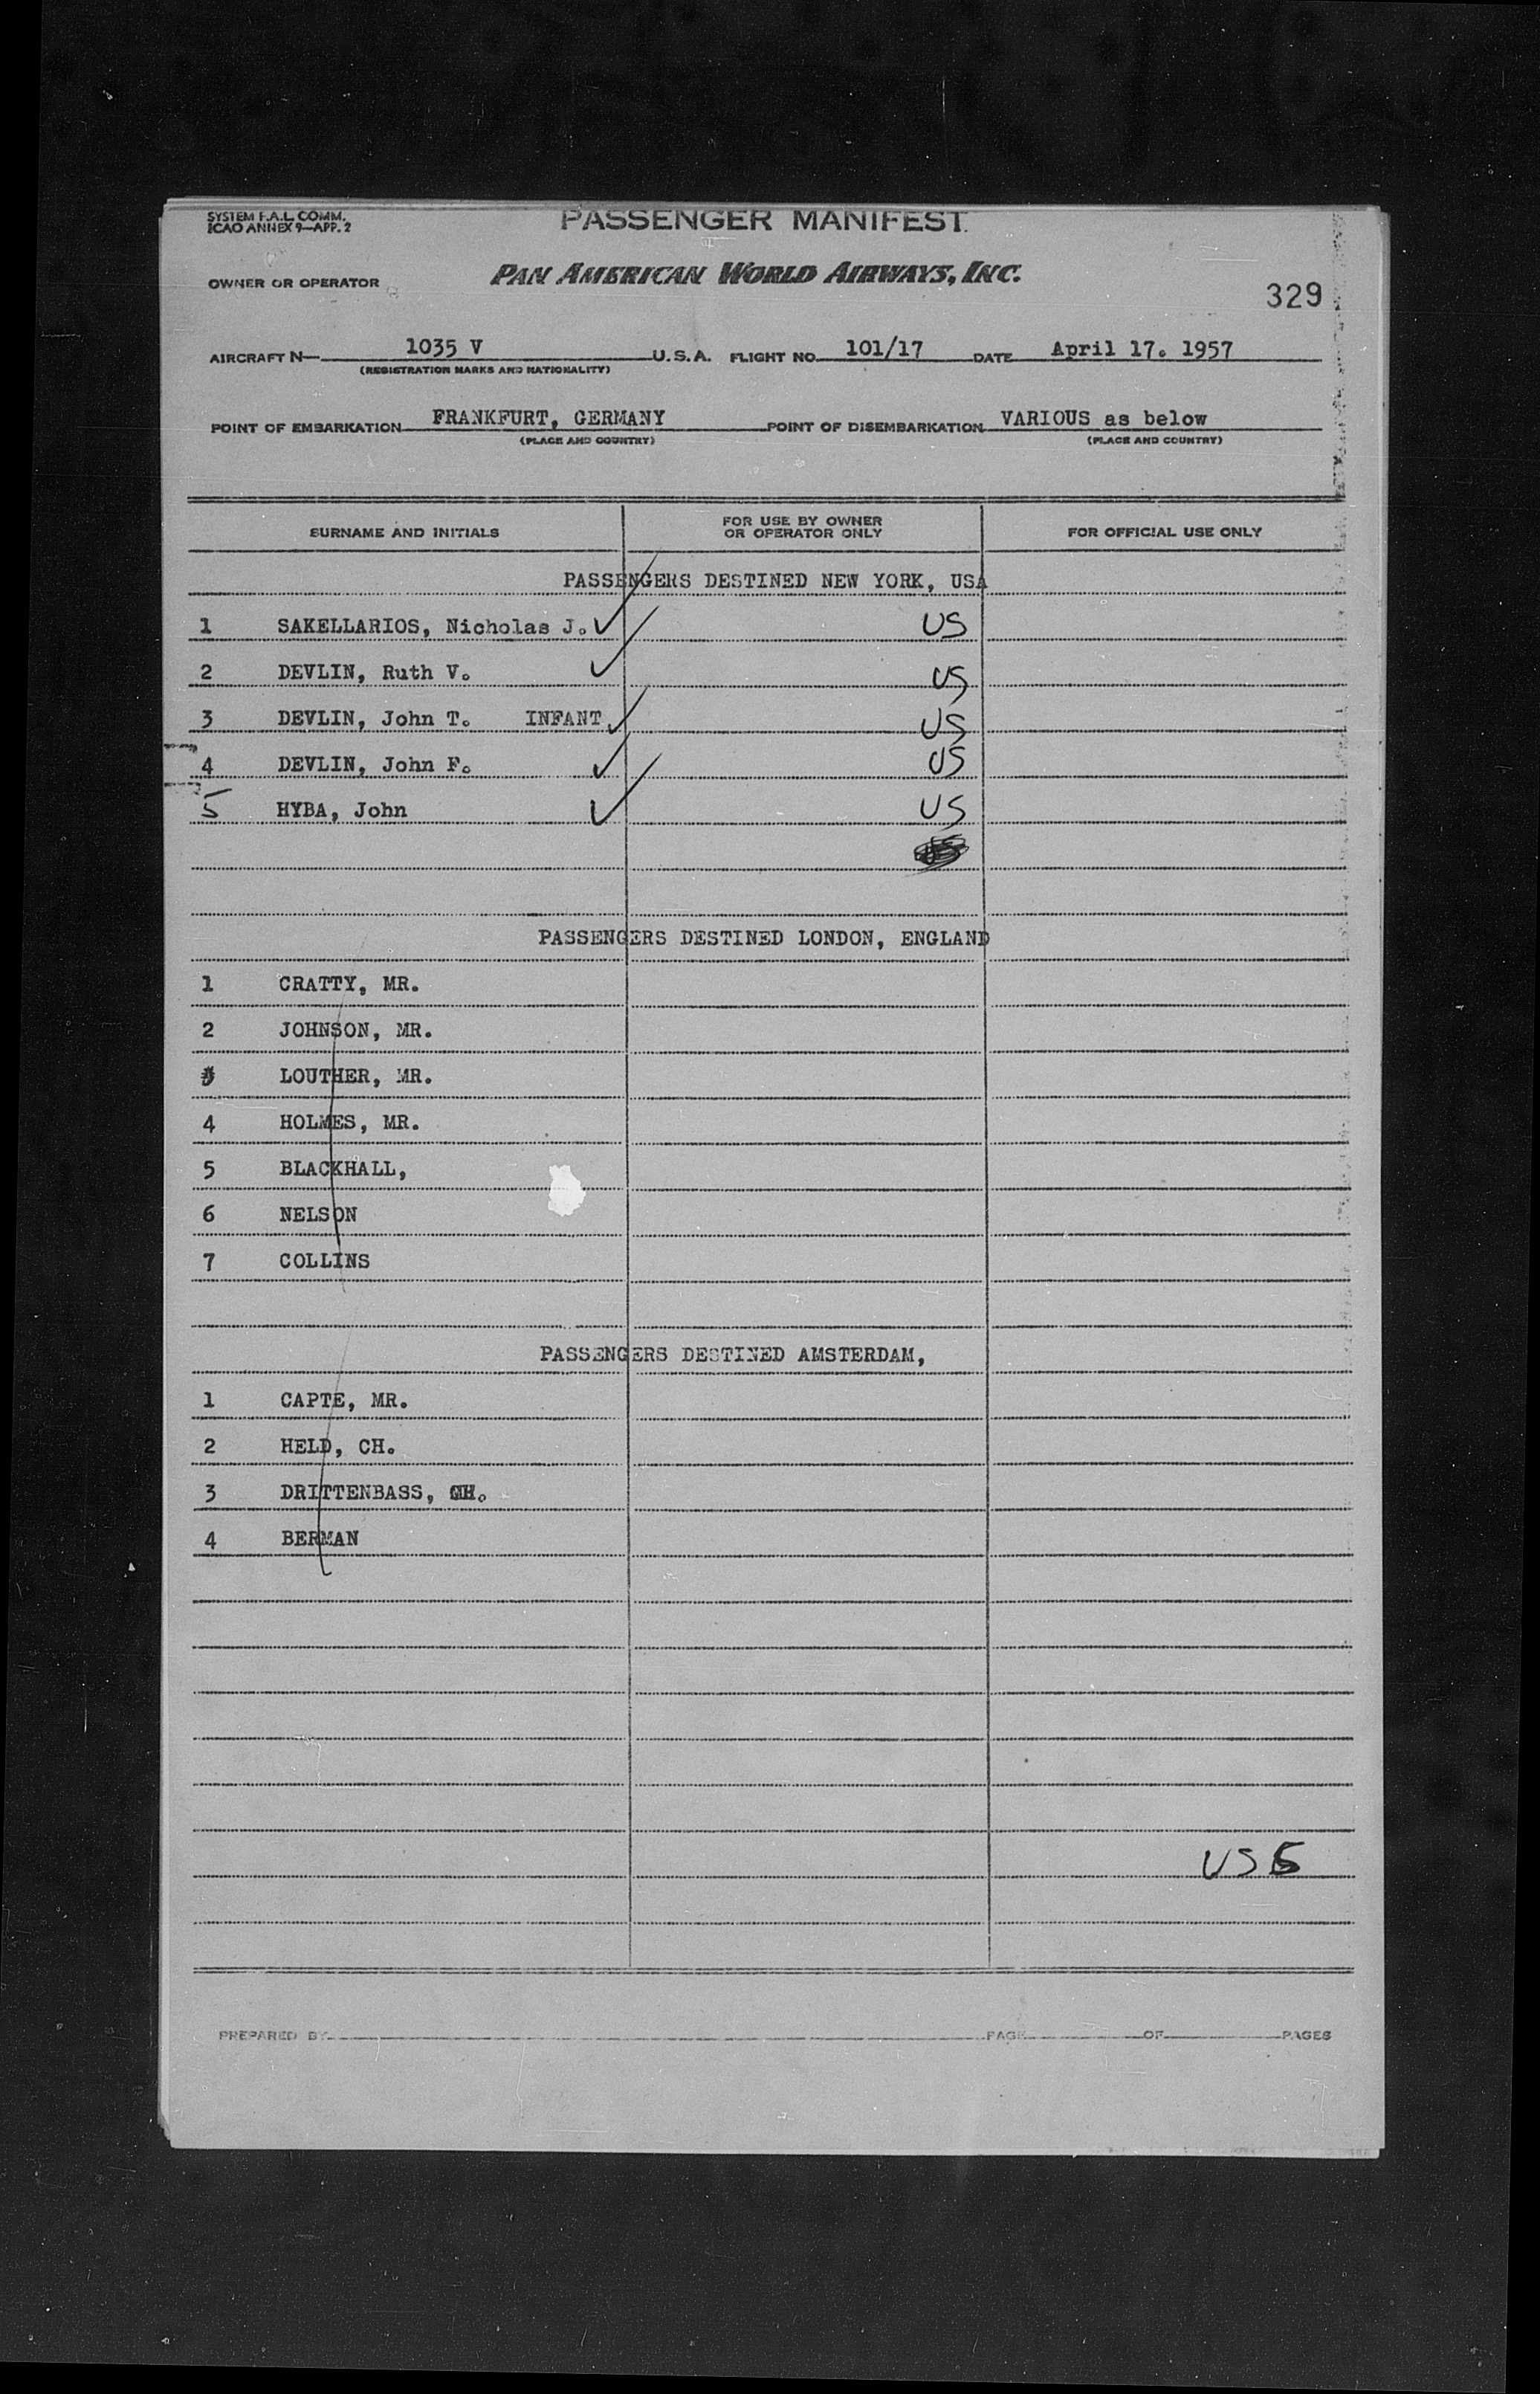 SYSTEM F.A.L. COMM.
ICAO ANNEX 9—APP. 2
PASSENGER MANIFEST
OWNER OR OPERATOR PAN AMERICAN WORLD AIRWAYS, INC.
329
AIRCRAFT N— 1035 V U.S.A. FLIGHT NO. 101/17 DATE April 17. 1957
(REGISTRATION MARKS AND NATIONALITY)
POINT OF EMBARKATION FRANKFURT, GERMANY POINT OF DISEMBARKATION VARIOUS as below
(PLACE AND COUNTRY) (PLACE AND COUNTRY)
SURNAME AND INITIALS FOR USE BY OWNER OR OPERATOR ONLY FOR OFFICIAL USE ONLY
PASSENGERS DESTINED NEW YORK, USA
1 SAKELLARIOS, Nicholas J. US
2 DEVLIN, Ruth V. US
3 DEVLIN, John T. INFANT US
4 DEVLIN, John F. US
5 HYBA, John US
PASSENGERS DESTINED LONDON, ENGLAND
1 CRATTY, MR.
2 JOHNSON, MR.
3 LOUTHER, MR.
4 HOLMES, MR.
5 BLACKHALL,
6 NELSON
7 COLLINS
PASSENGERS DESTINED AMSTERDAM,
1 CAPTE, MR.
2 HELD, CH.
3 DRITTENBASS, CH.
4 BERMAN
US 5
PREPARED BY PAGE OF PAGES